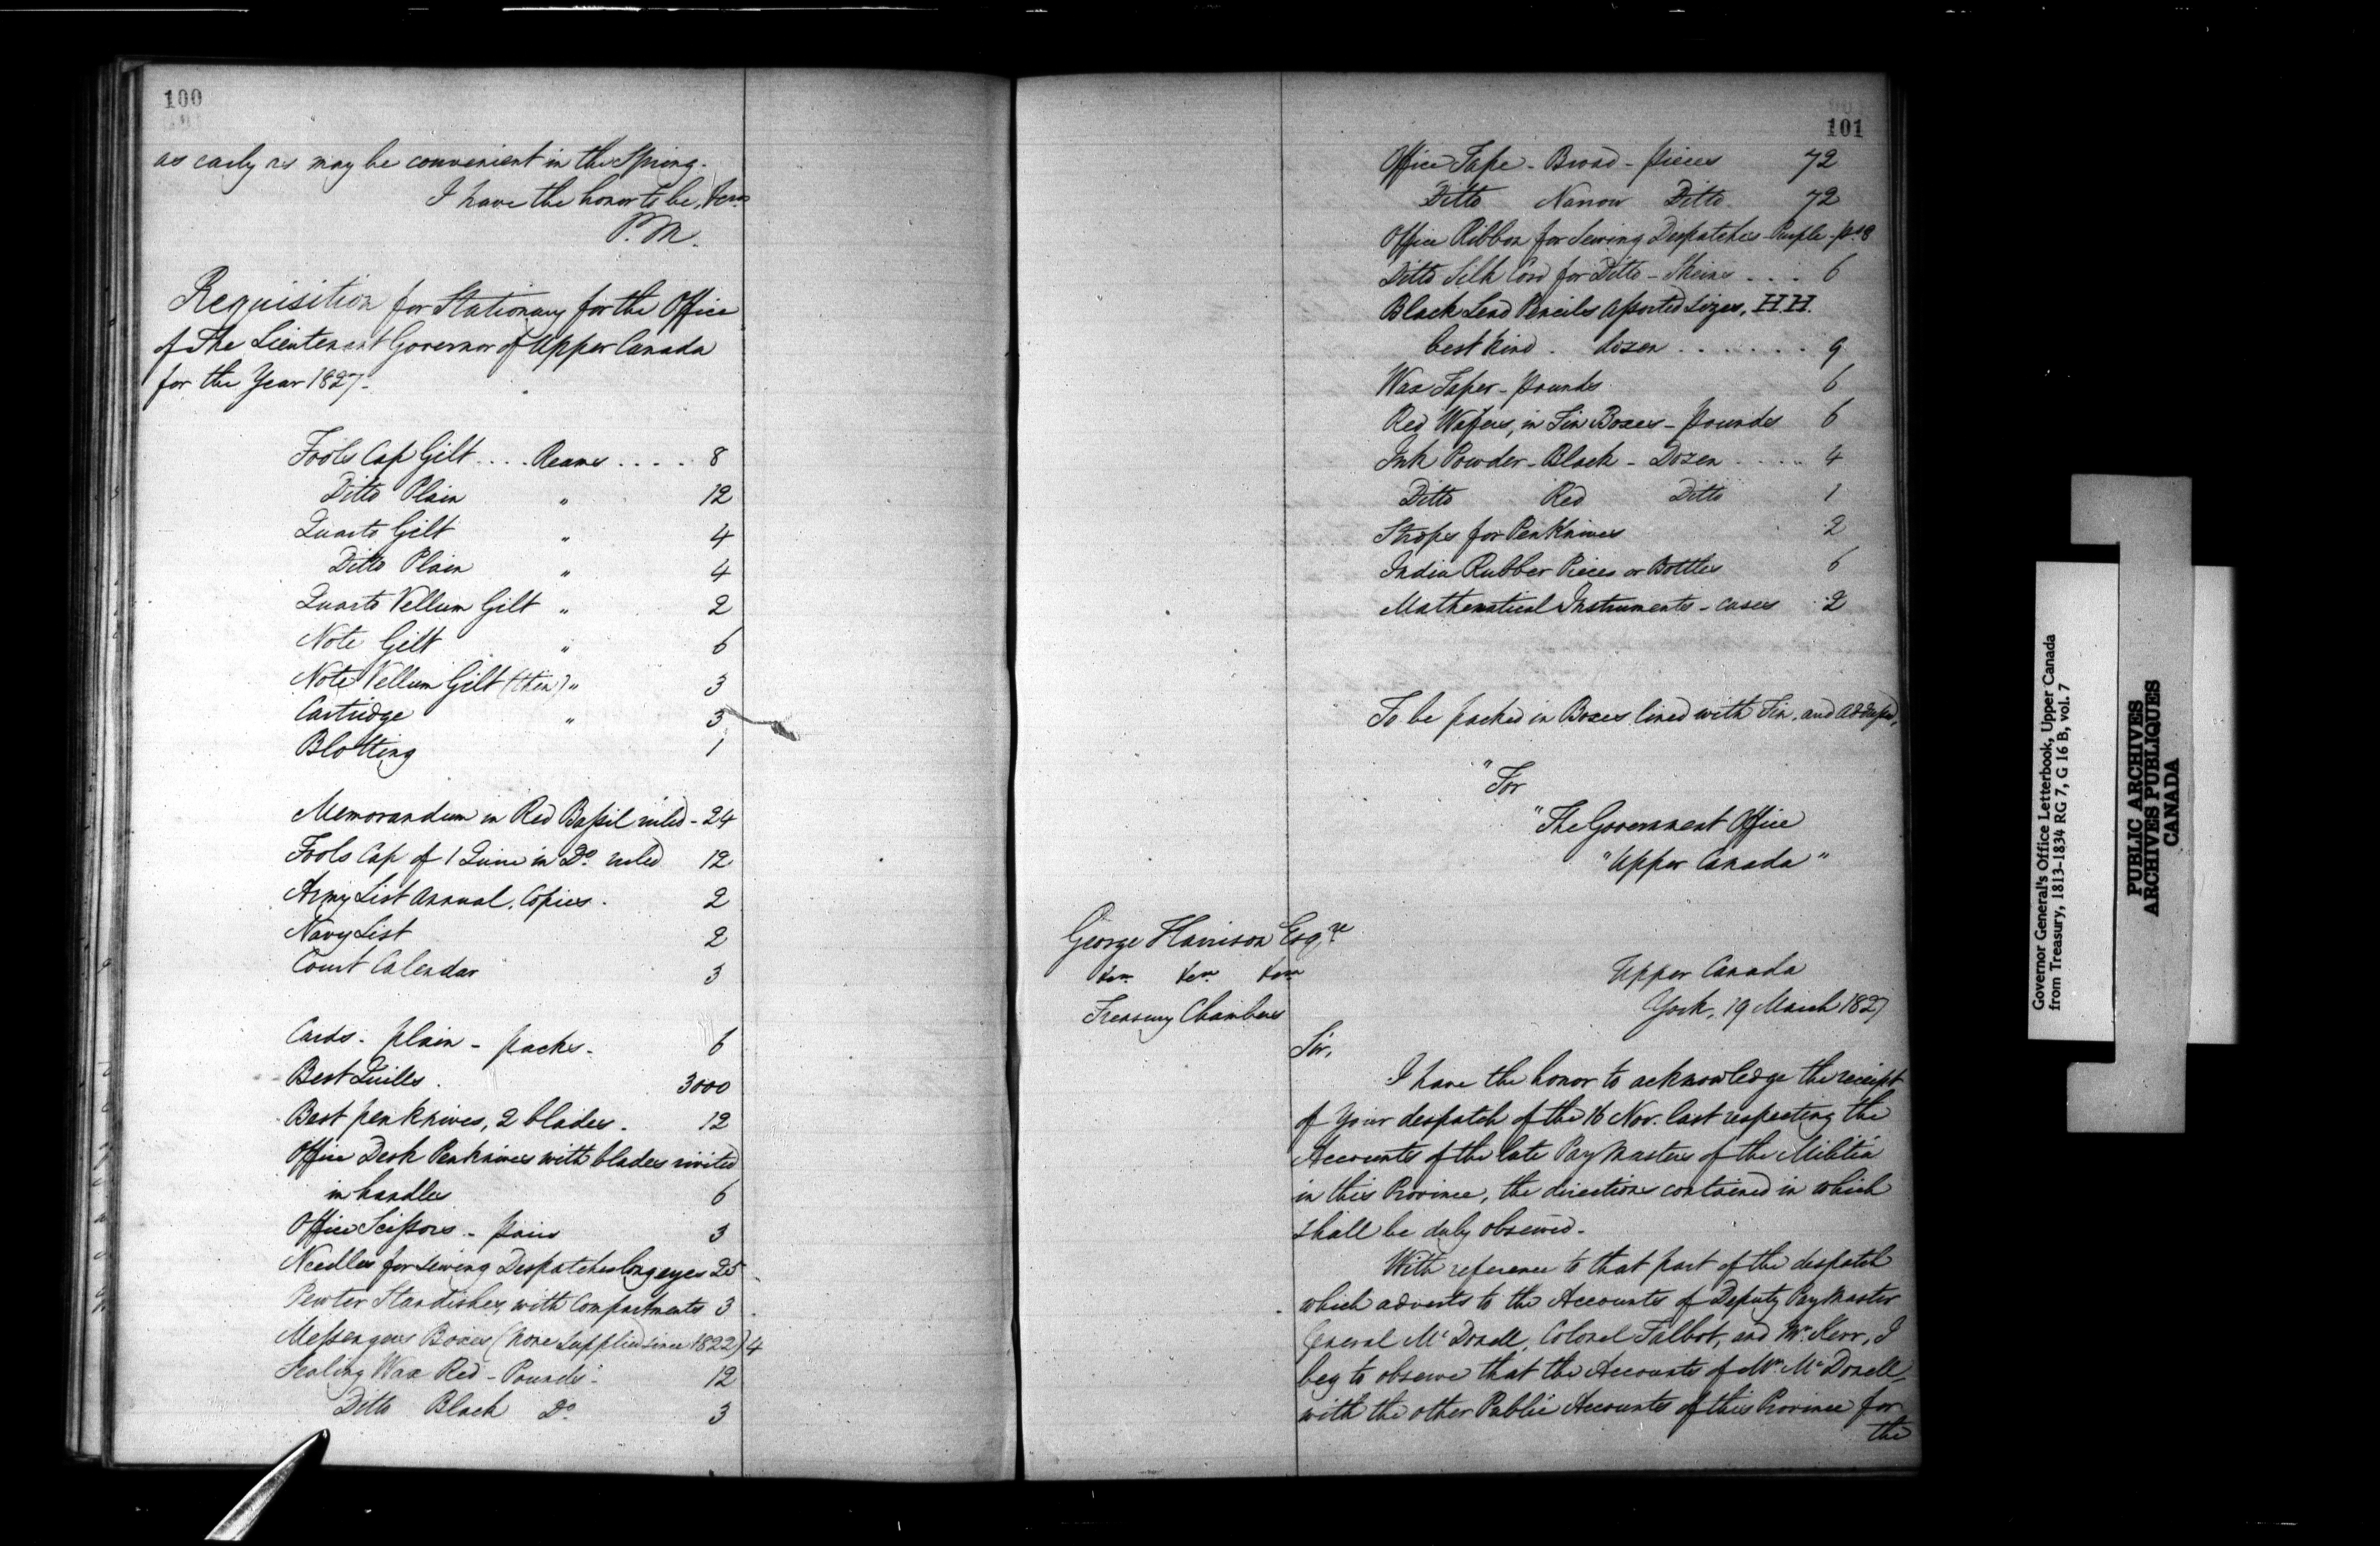 100
as early as may be convenient in the Spring.
I have the honor to be, &c.
P. M.
Requisition for Stationary for the Office
of The Lieutenant Governor of Upper Canada
for the Year 1827.
Fools Cap Gilt .... Reams .... 8
Ditto Plain " 12
Quarto Gilt " 4
Ditto Plain " 4
Quarto Vellum Gilt " 2
Note Gilt " 6
Note Vellum Gilt (thin) " 3
Cartridge " 3
Blotting 1
Memorandum in Red Bassil ruled - 24
Fools Cap of 1 Quire in Do. ruled 12
Army List Annual. Copies. 2
Navy List 2
Court Calendar 3
Cards - plain - packs - 6
Best Quills. 3000
Best penknives, 2 blades. 12
Office Desk Penknives with blades rivited
in handles 6
Office Scissors - pairs 3
Needles for sewing Despatches long eyes 25
Pewter Standishes with Compartments 3
Messengers Boxes (none supplied since 1822) 4
Sealing Wax Red - Pounds - 12
Ditto Black Do. 3
101
Office Tape - Broad - pieces 72
Ditto Narrow Ditto 72
Office Ribbon for Sewing Despatches - Purple - ps 8
Ditto Silk Cord for Ditto - Skeins .... 6
Black Lead Pencils assorted sizes, H.H.
best kind. dozen ....... 9
Wax Taper - pounds 6
Red Wafers, in Tin Boxes - pounds 6
Ink Powder - Black - Dozen ..... 4
Ditto Red Ditto 1
Strops for Penknives 2
India Rubber Pieces or Bottles 6
Mathematical Instruments - cases 2
To be packed in Boxes lined with Tin, and addressed,
"For
"The Government Office
"Upper Canada"
George Harrison Esqre
&c. &c. &c.
Treasury Chambers
Upper Canada
York, 19 March 1827
Sir,
I have the honor to acknowledge the receipt
of your despatch of the 16 Nov. last respecting the
Accounts of the late Pay Masters of the Militia
in this Province, the directions contained in which
shall be duly observed.
With reference to that part of the despatch
which adverts to the Accounts of Deputy Pay Master
General McDonell, Colonel Talbot, and Mr. Kerr, I
beg to observe that the Accounts of Mr. McDonell,
with the other Public Accounts of this Province for
the
Governor General's Office Letterbook, Upper Canada
from Treasury, 1813-1834 RG 7, G 16 B, vol. 7
PUBLIC ARCHIVES
ARCHIVES PUBLIQUES
CANADA